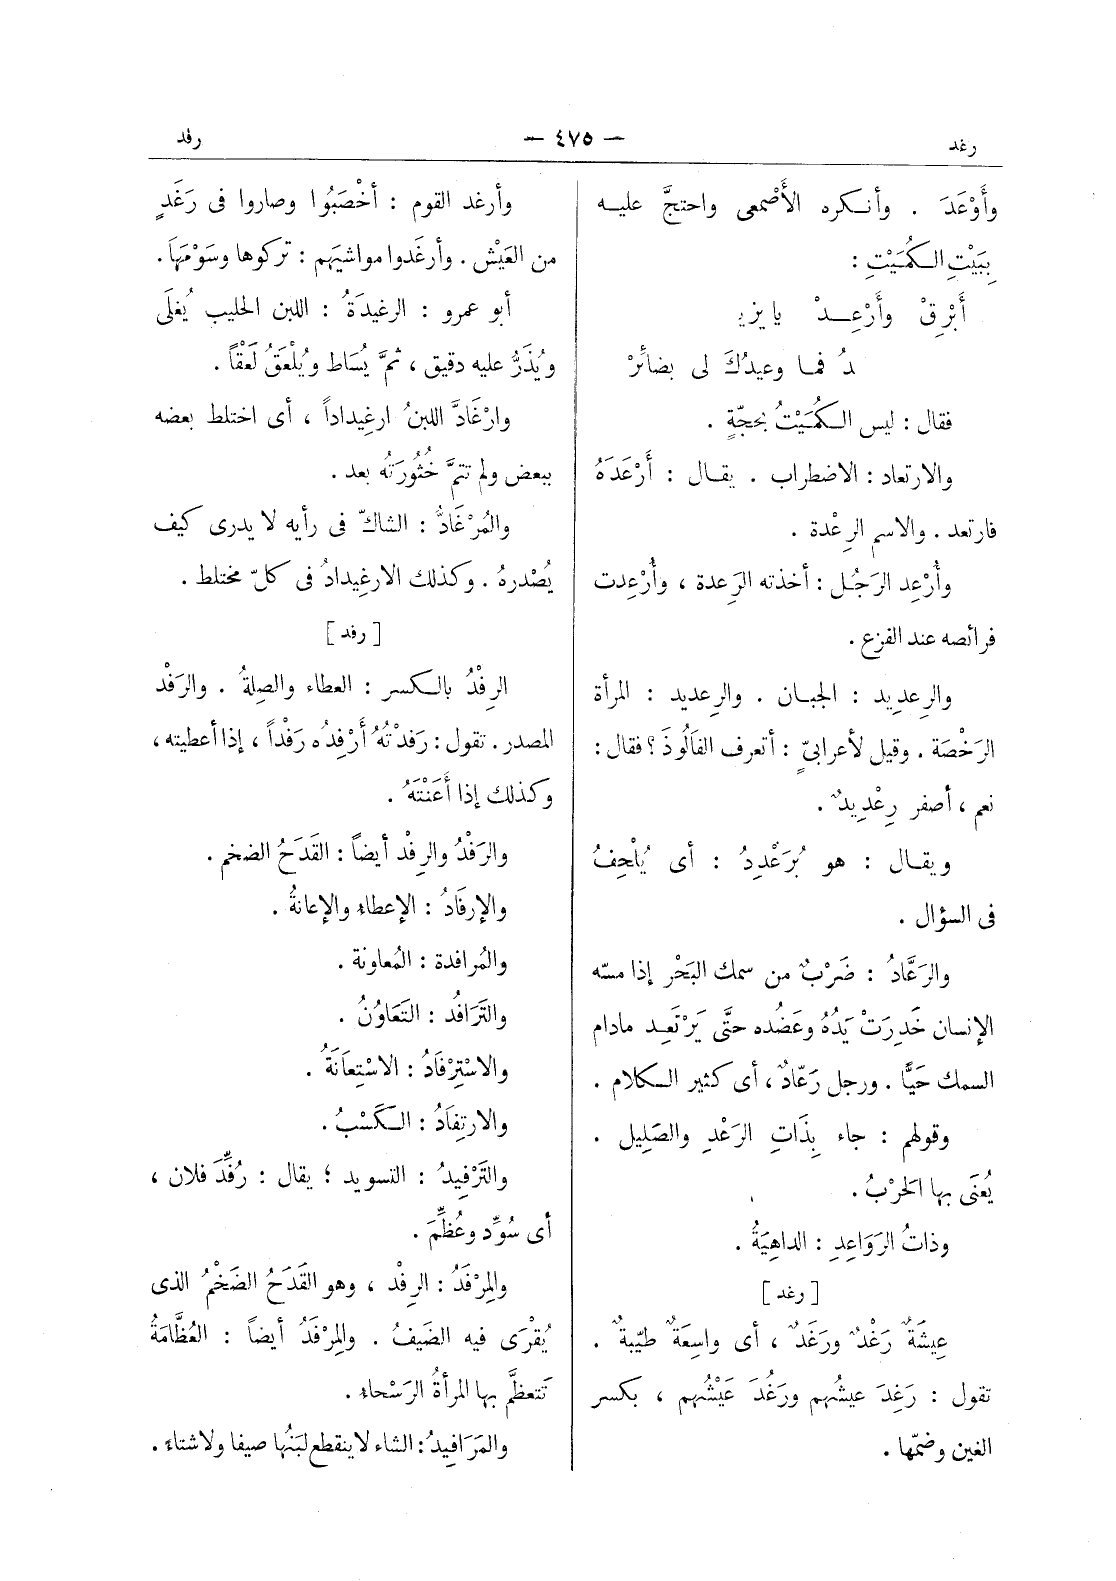 رغد
— ٤٧٥ —
رفد
وأَوْعَدَ . وأنكره الأَصْمعى واحتجَّ عليه
بِبَيْتِ الكُمَيْتِ :
أَبْرِقْ وأَرْعِدْ يا يزيـ
ـدُ فما وعيدُكَ لى بضائِرْ
فقال : ليس الكُمَيْتُ بحجّةٍ .
والارتعاد : الاضطراب . يقال : أَرْعَدَهُ
فارتعد . والاسم الرِعْدة .
وأُرْعِد الرَجُل : أخذته الرَعدة ، وأُرْعِدت
فرائصه عند الفزع .
والرِعديد : الجبان . والرِعديد : المرأة
الرَخْصَة . وقيل لأعرابىٍّ : أتعرف الفَالُوذَ ؟ فقال :
نعم ، أصفر رِعْدِيدٌ .
ويقال : هو يُرَعْدِدُ : أى يُلْحِفُ
فى السؤال .
والرَعَّادُ : ضَرْبٌ من سمك البَحْر إذا مسّه
الإنسان خَدِرَتْ يَدُهُ وعَضُده حتَّى يَرْتَعِد مادام
السمك حَيًّا . ورجل رَعّادٌ ، أى كثير الكلام .
وقولهم : جاء بِذَاتِ الرَعْدِ والصَلِيل .
يُعنَى بها الحَرْبُ .
وذاتُ الرَوَاعِدِ : الداهِيَةُ .
[ رغد ]
عِيشَةٌ رَغْدٌ ورَغَدٌ ، أى واسِعَةٌ طيّبةٌ .
تقول : رَغِدَ عيشُهم ورَغُدَ عَيْشُهم ، بكسر
الغين وضمّها .
وأرغد القوم : أخْصَبُوا وصاروا فى رَغَدٍ
من العَيْش . وأرغَدوا مواشيَهم : تركوها وسَوْمَهَا .
أبو عمرو : الرغيدَةُ : اللبن الحليب يُغلَى
ويُذَرُّ عليه دقيق ، ثمَّ يُسَاط ويُلْعَقُ لَعْقاً .
وارْغَادَّ اللبنُ ارغِيداداً ، أى اختلط بعضه
ببعض ولم تتمَّ خُثُورَتُه بعد .
والمُرْغَادُّ : الشاكّ فى رأيه لا يدرى كيف
يُصْدرهُ . وكذلك الارغِيدادُ فى كلّ مختلط .
[ رفد ]
الرِفْدُ بالكسر : العطاء والصِلةُ . والرَفْد
المصدر . تقول : رَفدْتُهُ أَرْفِدُه رَفْداً ، إذا أعطيته ،
وكذلك إذا أَعَنْتَهُ .
والرَفْدُ والرِفْد أيضاً : القَدَحُ الضخم .
والإرفَادُ : الإعطاء والإعانةُ .
والمُرافدة : المُعاونة .
والتَرَافُد : التَعَاوُنُ .
والاسْتِرْفَادُ : الاسْتِعَانَةُ .
والارتِفَادُ : الكَسْبُ .
والتَرْفِيدُ : التسويد ؛ يقال : رُفِّدَ فلان ،
أى سُوِّد وعُظِّمَ .
والمِرْفَدُ : الرِفْد ، وهو القَدَحُ الضَخْمُ الذى
يُقْرَى فيه الضَيفُ . والمِرْفَدُ أيضاً : العُظَّامَةُ
تَتعظَّم بها المرأةُ الرَسْحاء .
والمَرَافِيدُ : الشاء لا ينقطع لبَنُها صيفا ولا شتاءً .